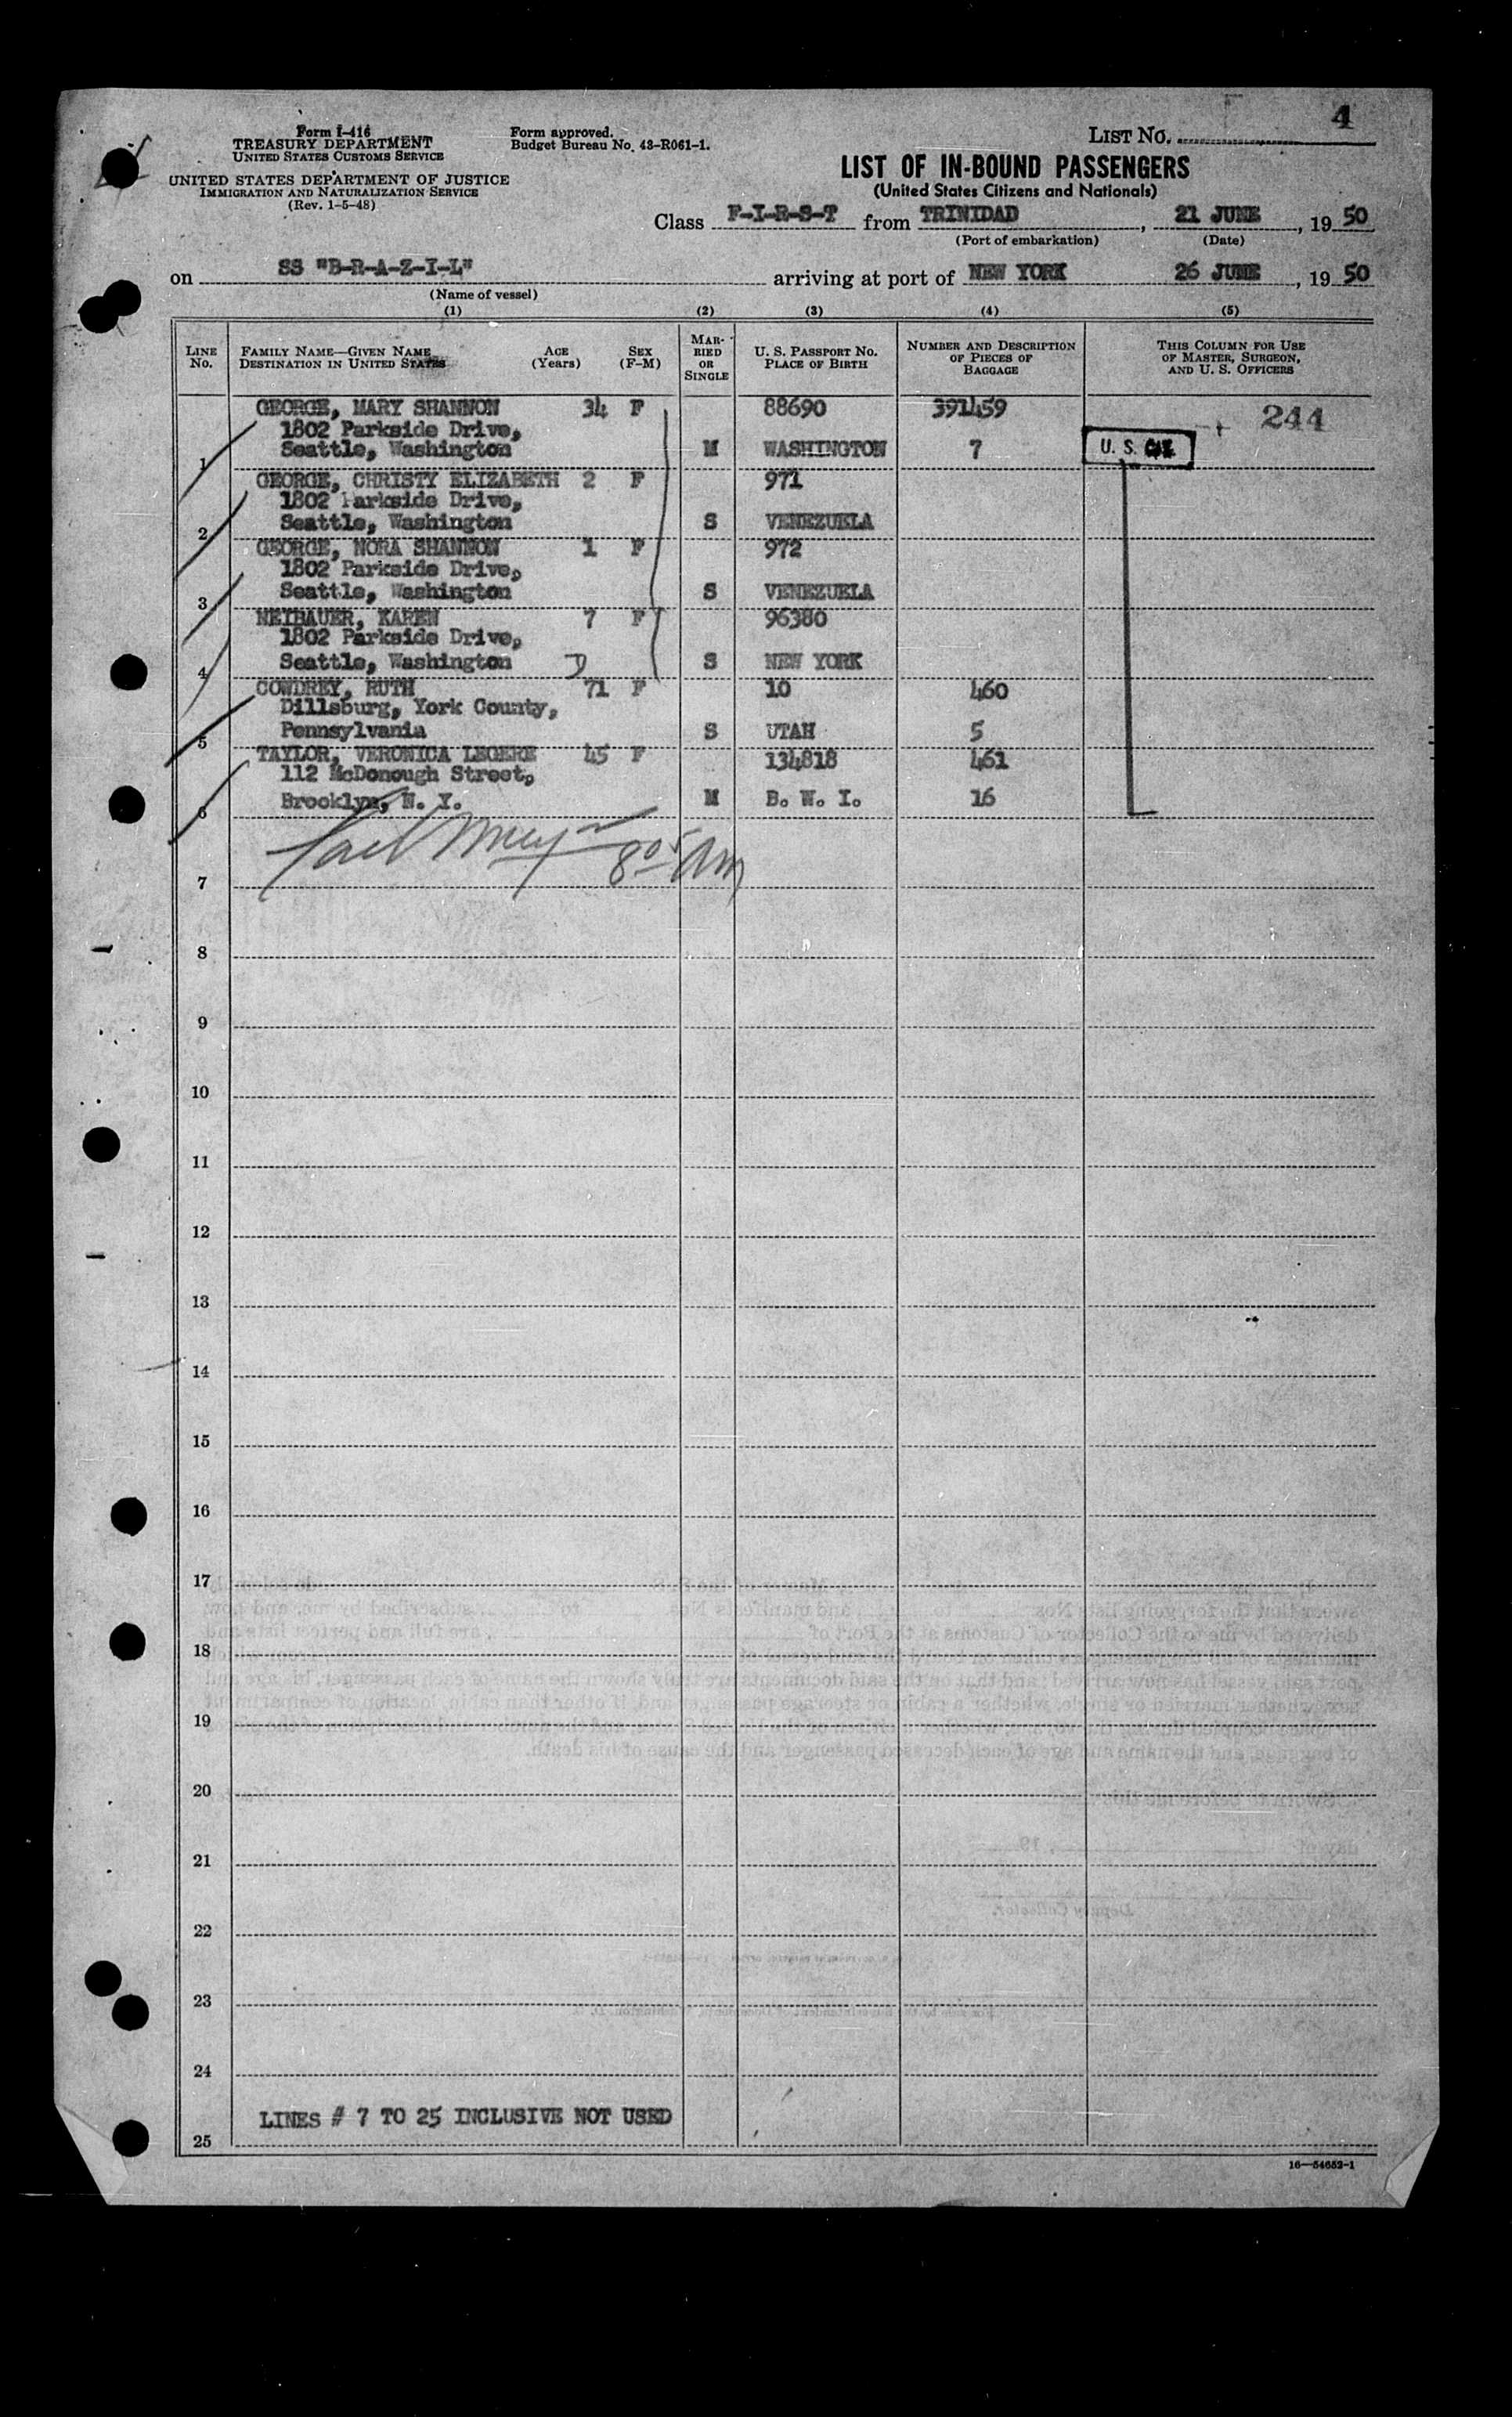 4
Form I-416
TREASURY DEPARTMENT
UNITED STATES CUSTOMS SERVICE
UNITED STATES DEPARTMENT OF JUSTICE
IMMIGRATION AND NATURALIZATION SERVICE
(Rev. 1-5-48)
Form approved.
Budget Bureau No. 43-R061-1.
LIST NO.
LIST OF IN-BOUND PASSENGERS
(United States Citizens and Nationals)
Class F-I-R-S-T from TRINIDAD, 21 JUNE, 19 50
(Port of embarkation) (Date)
on SS "B-R-A-Z-I-L" arriving at port of NEW YORK 26 JUNE, 19 50
(Name of vessel)
(1) (2) (3) (4) (5)
LINE NO. FAMILY NAME—GIVEN NAME DESTINATION IN UNITED STATES AGE (Years) SEX (F-M) MARRIED OR SINGLE U. S. PASSPORT NO. PLACE OF BIRTH NUMBER AND DESCRIPTION OF PIECES OF BAGGAGE THIS COLUMN FOR USE OF MASTER, SURGEON, AND U. S. OFFICERS
GEORGE, MARY SHANNON 34 F 88690 391459 244
1802 Parkside Drive,
1 Seattle, Washington M WASHINGTON 7 U. S. CIT.
GEORGE, CHRISTY ELIZABETH 2 F 971
1802 Parkside Drive,
2 Seattle, Washington S VENEZUELA
GEORGE, NORA SHANNON 1 F 972
1802 Parkside Drive,
3 Seattle, Washington S VENEZUELA
NEIBAUER, KAREN 7 F 96380
1802 Parkside Drive,
4 Seattle, Washington S NEW YORK
COWDREY, RUTH 71 F 10 460
Dillsburg, York County,
5 Pennsylvania S UTAH 5
TAYLOR, VERONICA LEGERE 45 F 134818 461
112 McDonough Street,
6 Brooklyn, N. Y. M B. W. I. 16
8 05 AM
7
8
9
10
11
12
13
14
15
16
17
18
19
20
21
22
23
24
LINES # 7 TO 25 INCLUSIVE NOT USED
25
16—54652-1